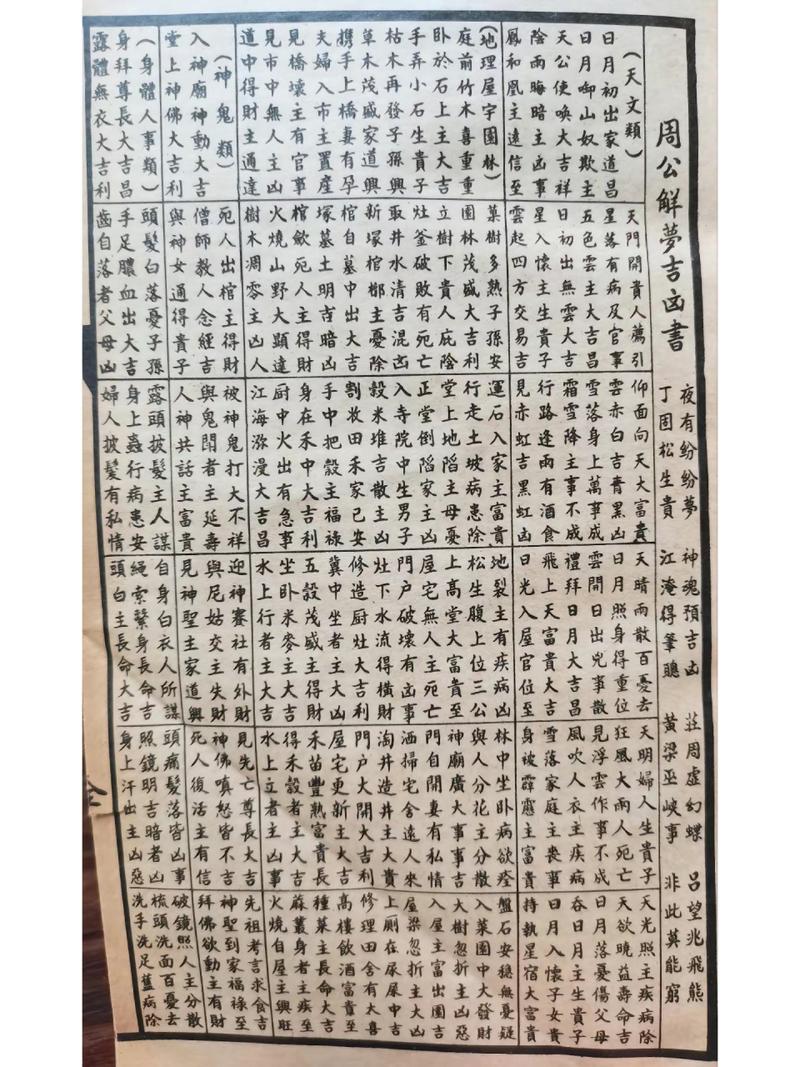 周公解夢吉凶書
夜有紛紛夢 神魂預吉凶 莊周虛幻蝶 呂望兆飛熊
丁固松生貴 江淹得筆聰 黃梁巫峽事 非此莫能窮
(天文類)
日月初出家道昌
日月啣山奴欺主
天公使喚大吉祥
陰雨晦暗主凶事
鳳和凰主遠信至
天門開貴人薦引
星落有病及官事
五色雲主大吉昌
日初出無雲大吉
星入懷主生貴子
雲起四方交易吉
仰面向天大富貴
雲赤白吉青黑凶
雪落身上萬事成
霜雪降主事不成
行路逢雨有酒食
見赤虹吉黑虹凶
天晴雨散百憂去
日月照身得重位
雲開日出兇事散
禮拜日月大吉昌
飛上天富貴大吉
日光入屋官位至
天明婦人生貴子
狂風大雨人死亡
見浮雲作事不成
風吹人衣主疾病
雪落家庭主喪事
身被霹靂主富貴
天光照主疾病除
天欲曉益壽命吉
日月落憂傷父母
吞日月主生貴子
日月入懷子女貴
持執星宿大富貴
(地理屋宇園林)
庭前竹木喜重重
卧於石上主大吉
手弄小石生貴子
枯木再發子孫興
草木茂盛家道興
携手上橋妻有孕
夫婦入市主置產
見橋壞主有官事
見市中無人主凶
道中得財主通達
菓樹多熟子孫安
園林茂盛大吉利
立樹下貴人庇陰
灶釜破敗有死亡
取井水清吉混凶
新塚棺槨主憂除
棺自墓中出大吉
塚墓土明吉暗凶
棺歛死人主得財
火燒山野大顯達
樹木凋零主凶人
運石入家主富貴
行走土坡病患除
堂上地陷主母憂
正堂倒陷家主凶
入寺院中生男子
穀米堆吉散主凶
割妝田禾家已安
手中把穀主福祿
身在禾中大吉利
厨中火出有急事
江海漲漫大吉昌
地裂主有疾病凶
松生腹上位三公
上高堂大富貴至
屋宅無人主死亡
門戶破壞有凶事
灶下水流得橫財
修造厨灶大吉利
糞中坐者主大凶
五穀茂盛主得財
坐卧米麥主大吉
水上行者主大吉
林中坐卧病欲痊
與人分花主分散
神廟廣大事事吉
門自開妻有私情
洒掃宅舍遠人來
淘井造井主大吉
門戶大開大吉利
屋宅更新主大吉
禾苗豐熟富貴長
得禾穀者主大吉
水上立者主凶事
盤石安穩無憂疑
入菜園中大發財
大樹忽折主凶惡
入屋主富出園吉
屋梁忽折主大凶
上厠在尿屎中吉
修理田舍有大喜
高樓飲酒富貴至
種菜主長命大吉
麻叢身者主疾至
火燒自屋主興旺
(神鬼類)
入神廟神動大吉
堂上神佛大吉利
死人出棺主得財
僧師教人念經吉
與神女通得貴子
被神鬼打大不祥
與鬼鬬者主延壽
人神共話主富貴
迎神賽社有外財
與尼姑交主失財
見神聖主家道興
見先亡尊長大吉
神佛嗔怒皆不吉
死人復活主有信
先祖考言求食吉
神聖到家福祿至
拜佛欲動主有財
(身體人事類)
身拜尊長大吉昌
露體無衣大吉利
頭髮白落憂子孫
手足膿血出大吉
齒自落者父母凶
露頭披髮主人謀
身上蟲行病患安
婦人披髮有私情
自身白衣人所謀
繩索繫身長命吉
頭白主長命大吉
頭痛髮落皆凶事
照鏡明吉暗者凶
身上汗出主凶惡
破鏡照人主分散
梳頭洗面百憂去
洗手洗足舊病除